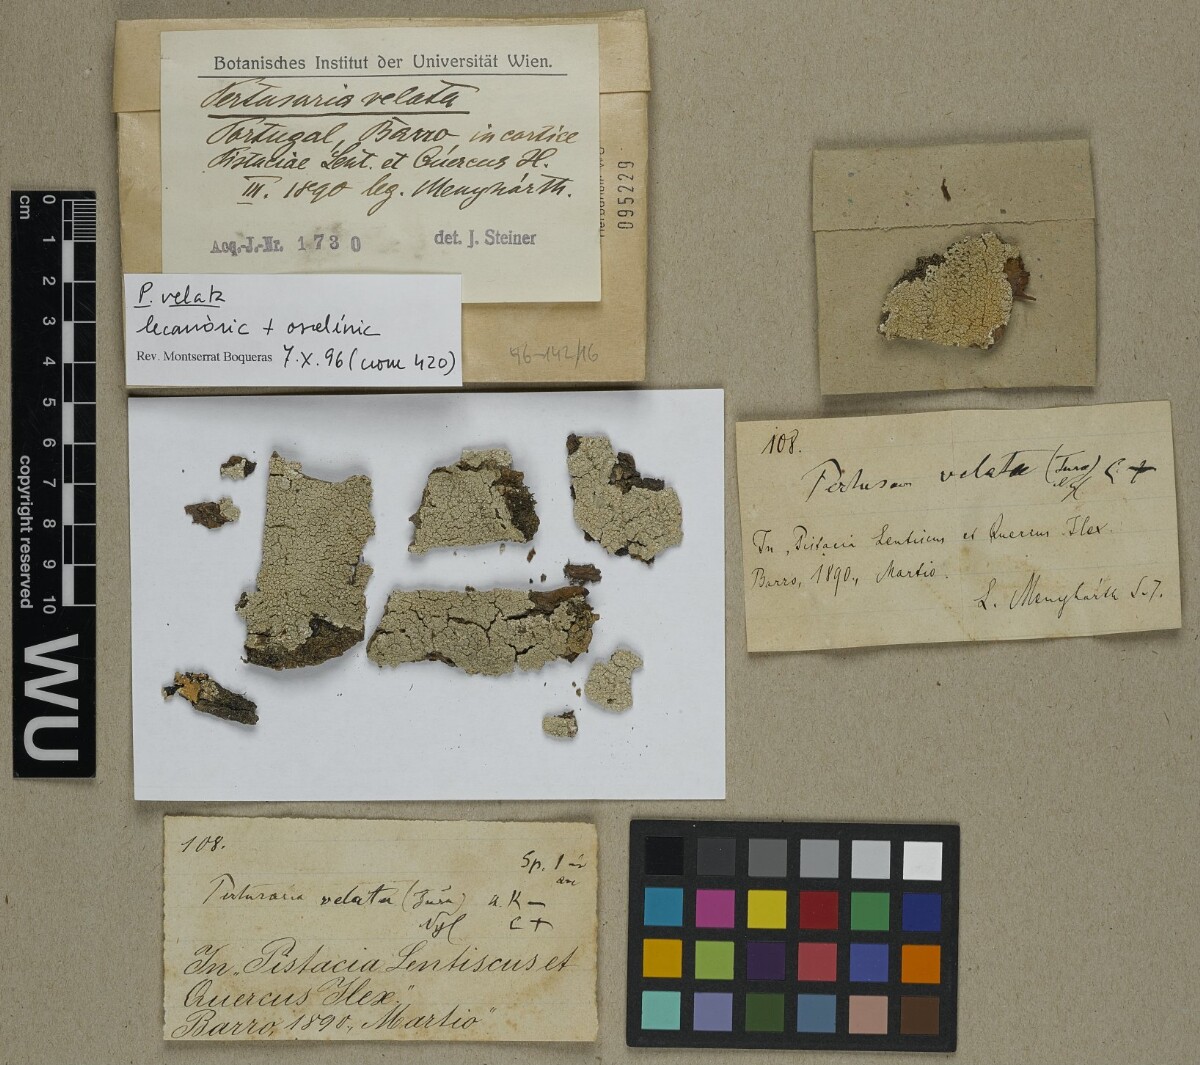 Botanisches Institut der Universität Wien.
Pertusaria velata
Portugal, Barro in cortice
Pistaciae Lent. et Quercus H.
III. 1890 leg. Menyhárth.
Acq.-J.-Nr. 1730 det. J. Steiner
095229
P. velata
lecanòric +
Rev. Montserrat Boqueras 7.X.96 (nom 420)
96-142/16
cm
0
1
2
3
4
5
6
7
8
9
10
copyright reserved
WU
108.
velata C +
In „Pistacia Lentiscus et Quercus Ilex.
Barro, 1890., Martio.
L. Menyhárth S.J.
108.
Sp. 1
Pertusaria velata a. K –
Nyl C +
In „Pistacia Lentiscus et
Quercus Ilex."
Barro, 1890., Martio"